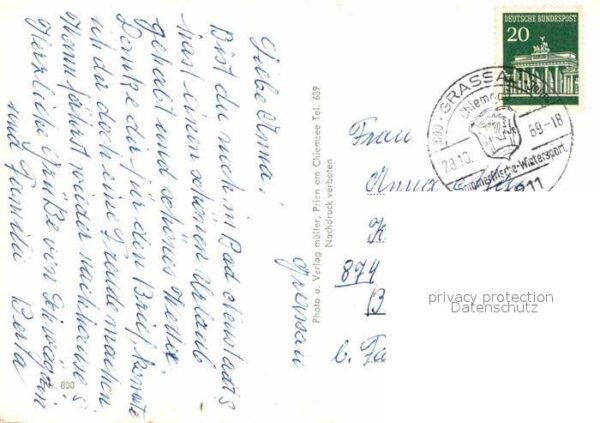 Liebe Anna!
Bist du noch in Bad Neustadt S
hast einen schönen Urlaub
gehabt und schönes Wetter
Danke dir für den Brief, konnte
ich dir doch eine Freude machen
Wann fährst wieder nach Hause?
Herzliche Grüße von
und Familie Berta
Nr. 800
Photo u. Verlag müller, Prien am Chiemsee Tel. 639
Nachdruck verboten
DEUTSCHE BUNDESPOST
20
GRASSAU
Chiemgau
23.10. 69-18
Wintersport
Frau
Anna
K
874
B
b. Fa
privacy protection
Datenschutz